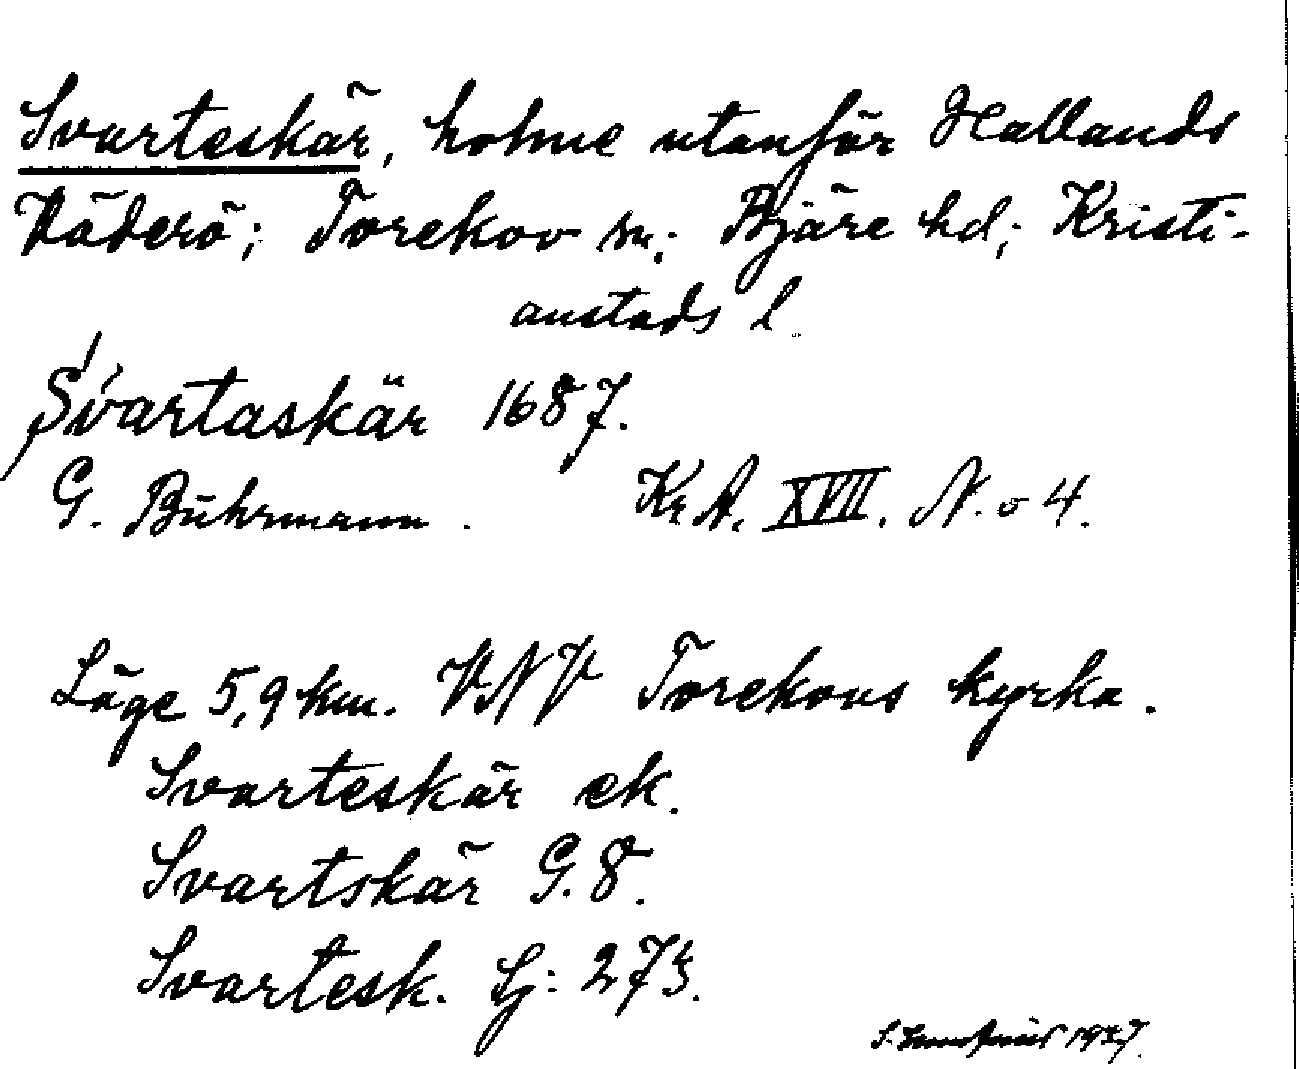 Svarteskär, holme utanför Hallands
Väderö; Torekov sn; Bjäre hd; Kristi-
anstads l.
Svartaskär 1687.
G. Bührmann. KrA. XVII. N.o 4.
Läge 5,9 km. VNV Torekovs kyrka.
Svarteskär ek.
Svartskär G. 8.
Svartesk. Sj: 273.
S. 1937.